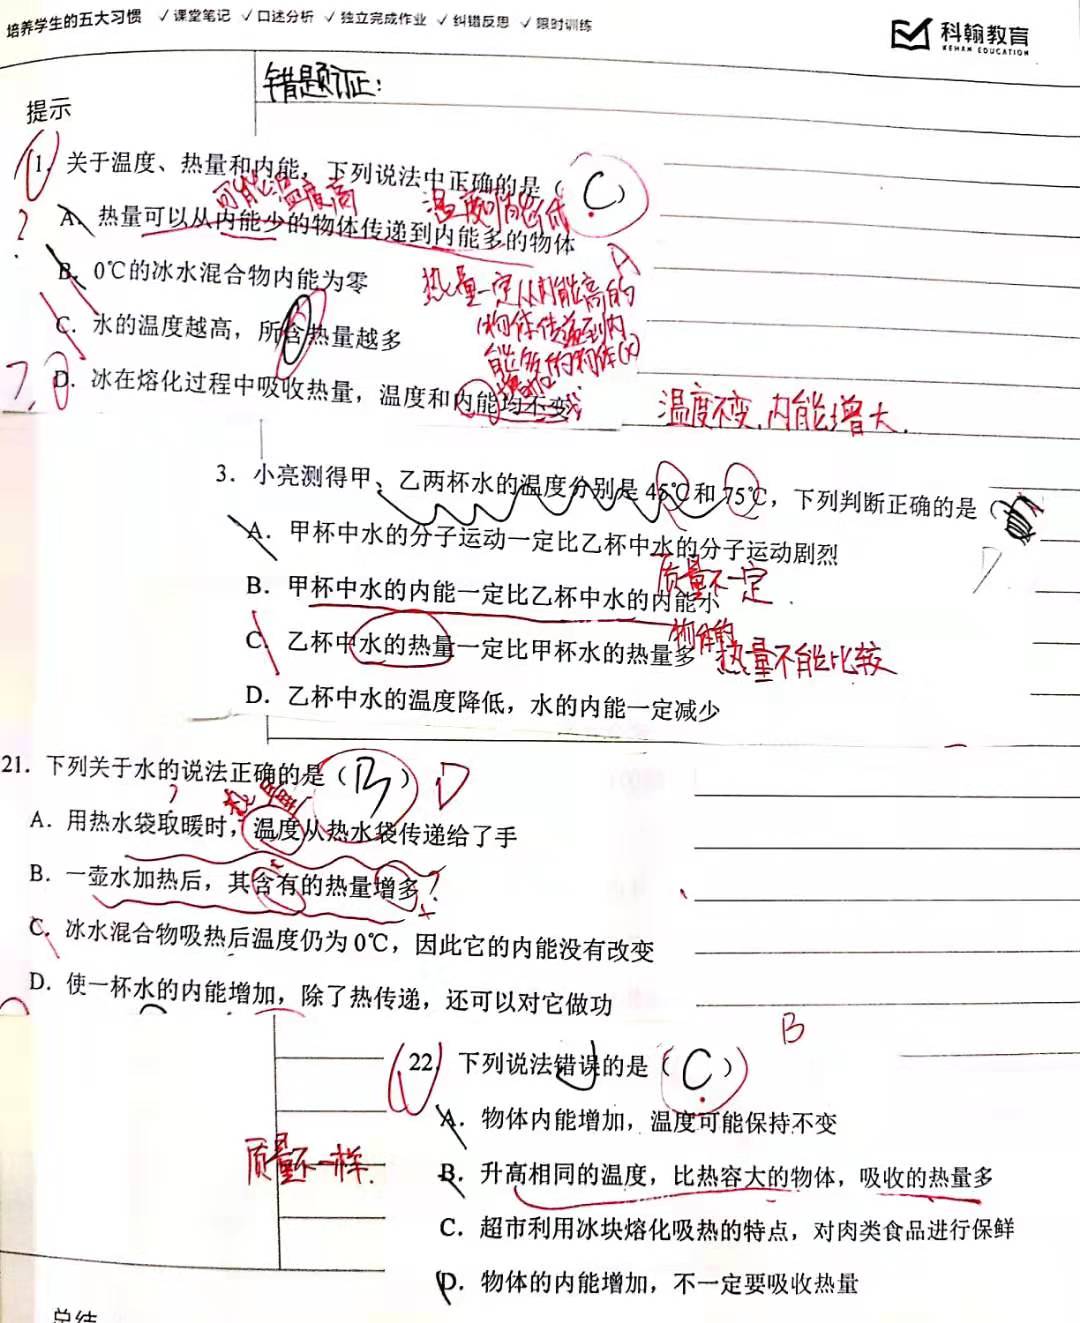 培养学生的五大习惯 √课堂笔记 √口述分析 √独立完成作业 √纠错反思 √限时训练
科翰教育
KEHAN EDUCATION
错题订正:
提示
1. 关于温度、热量和内能，下列说法中正确的是（ C ）
可能温度高 温度可能低
A. 热量可以从内能少的物体传递到内能多的物体
A
B. 0℃的冰水混合物内能为零
热量一定从内能高的
物体传递到内
C. 水的温度越高，所含热量越多
能低的物体(×)
D. 冰在熔化过程中吸收热量，温度和内能均不变
增加
温度不变,内能增大.
3. 小亮测得甲、乙两杯水的温度分别是 45℃和 75℃，下列判断正确的是（
D
A. 甲杯中水的分子运动一定比乙杯中水的分子运动剧烈
质量不一定
B. 甲杯中水的内能一定比乙杯中水的内能小
物体的
C. 乙杯中水的热量一定比甲杯水的热量多
热量不能比较
D. 乙杯中水的温度降低，水的内能一定减少
21. 下列关于水的说法正确的是（ B ） D
热量
A. 用热水袋取暖时，温度从热水袋传递给了手
B. 一壶水加热后，其含有的热量增多
C. 冰水混合物吸热后温度仍为 0℃，因此它的内能没有改变
D. 使一杯水的内能增加，除了热传递，还可以对它做功
B
22. 下列说法错误的是（ C ）
A. 物体内能增加，温度可能保持不变
质量不一样.
B. 升高相同的温度，比热容大的物体，吸收的热量多
C. 超市利用冰块熔化吸热的特点，对肉类食品进行保鲜
D. 物体的内能增加，不一定要吸收热量
总结